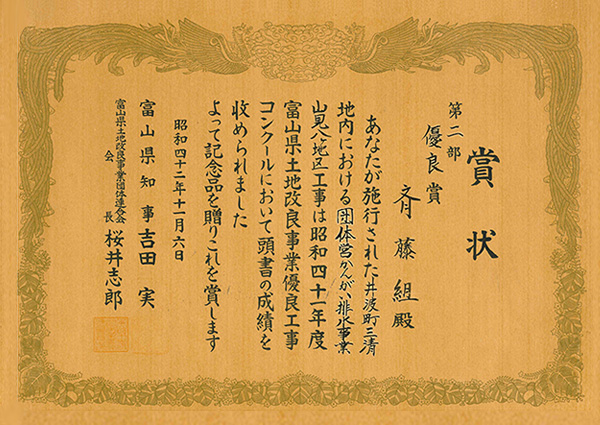 賞状
第二部
優良賞
斉藤組殿
あなたが施行された井波町三清
地内における団体営かんがい排水事業
山見八ヶ地区工事は昭和四十一年度
富山県土地改良事業優良工事
コンクールにおいて頭書の成績を
収められました
よって記念品を贈りこれを賞します
昭和四十二年十一月六日
富山県知事吉田実
富山県土地改良事業団体連合会
会長桜井志郎